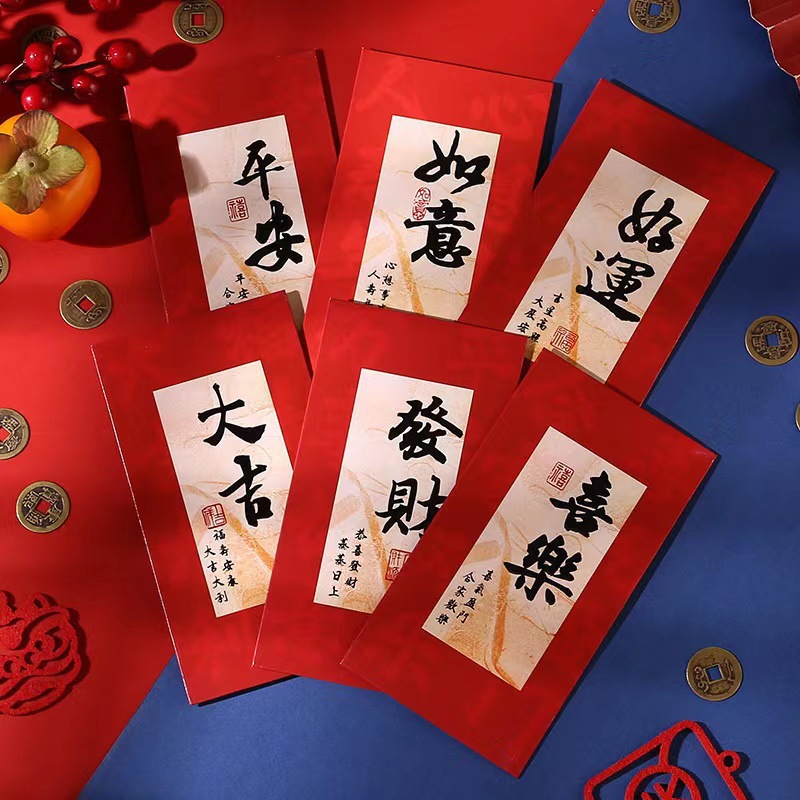 平安
禧
平安
合
如意
如意
心想事
人壽
好運
吉星高照
大展
福
大吉
福壽安康
大吉大利
發財
恭喜發財
蒸蒸日上
禧
喜樂
喜氣盈門
合家歡樂